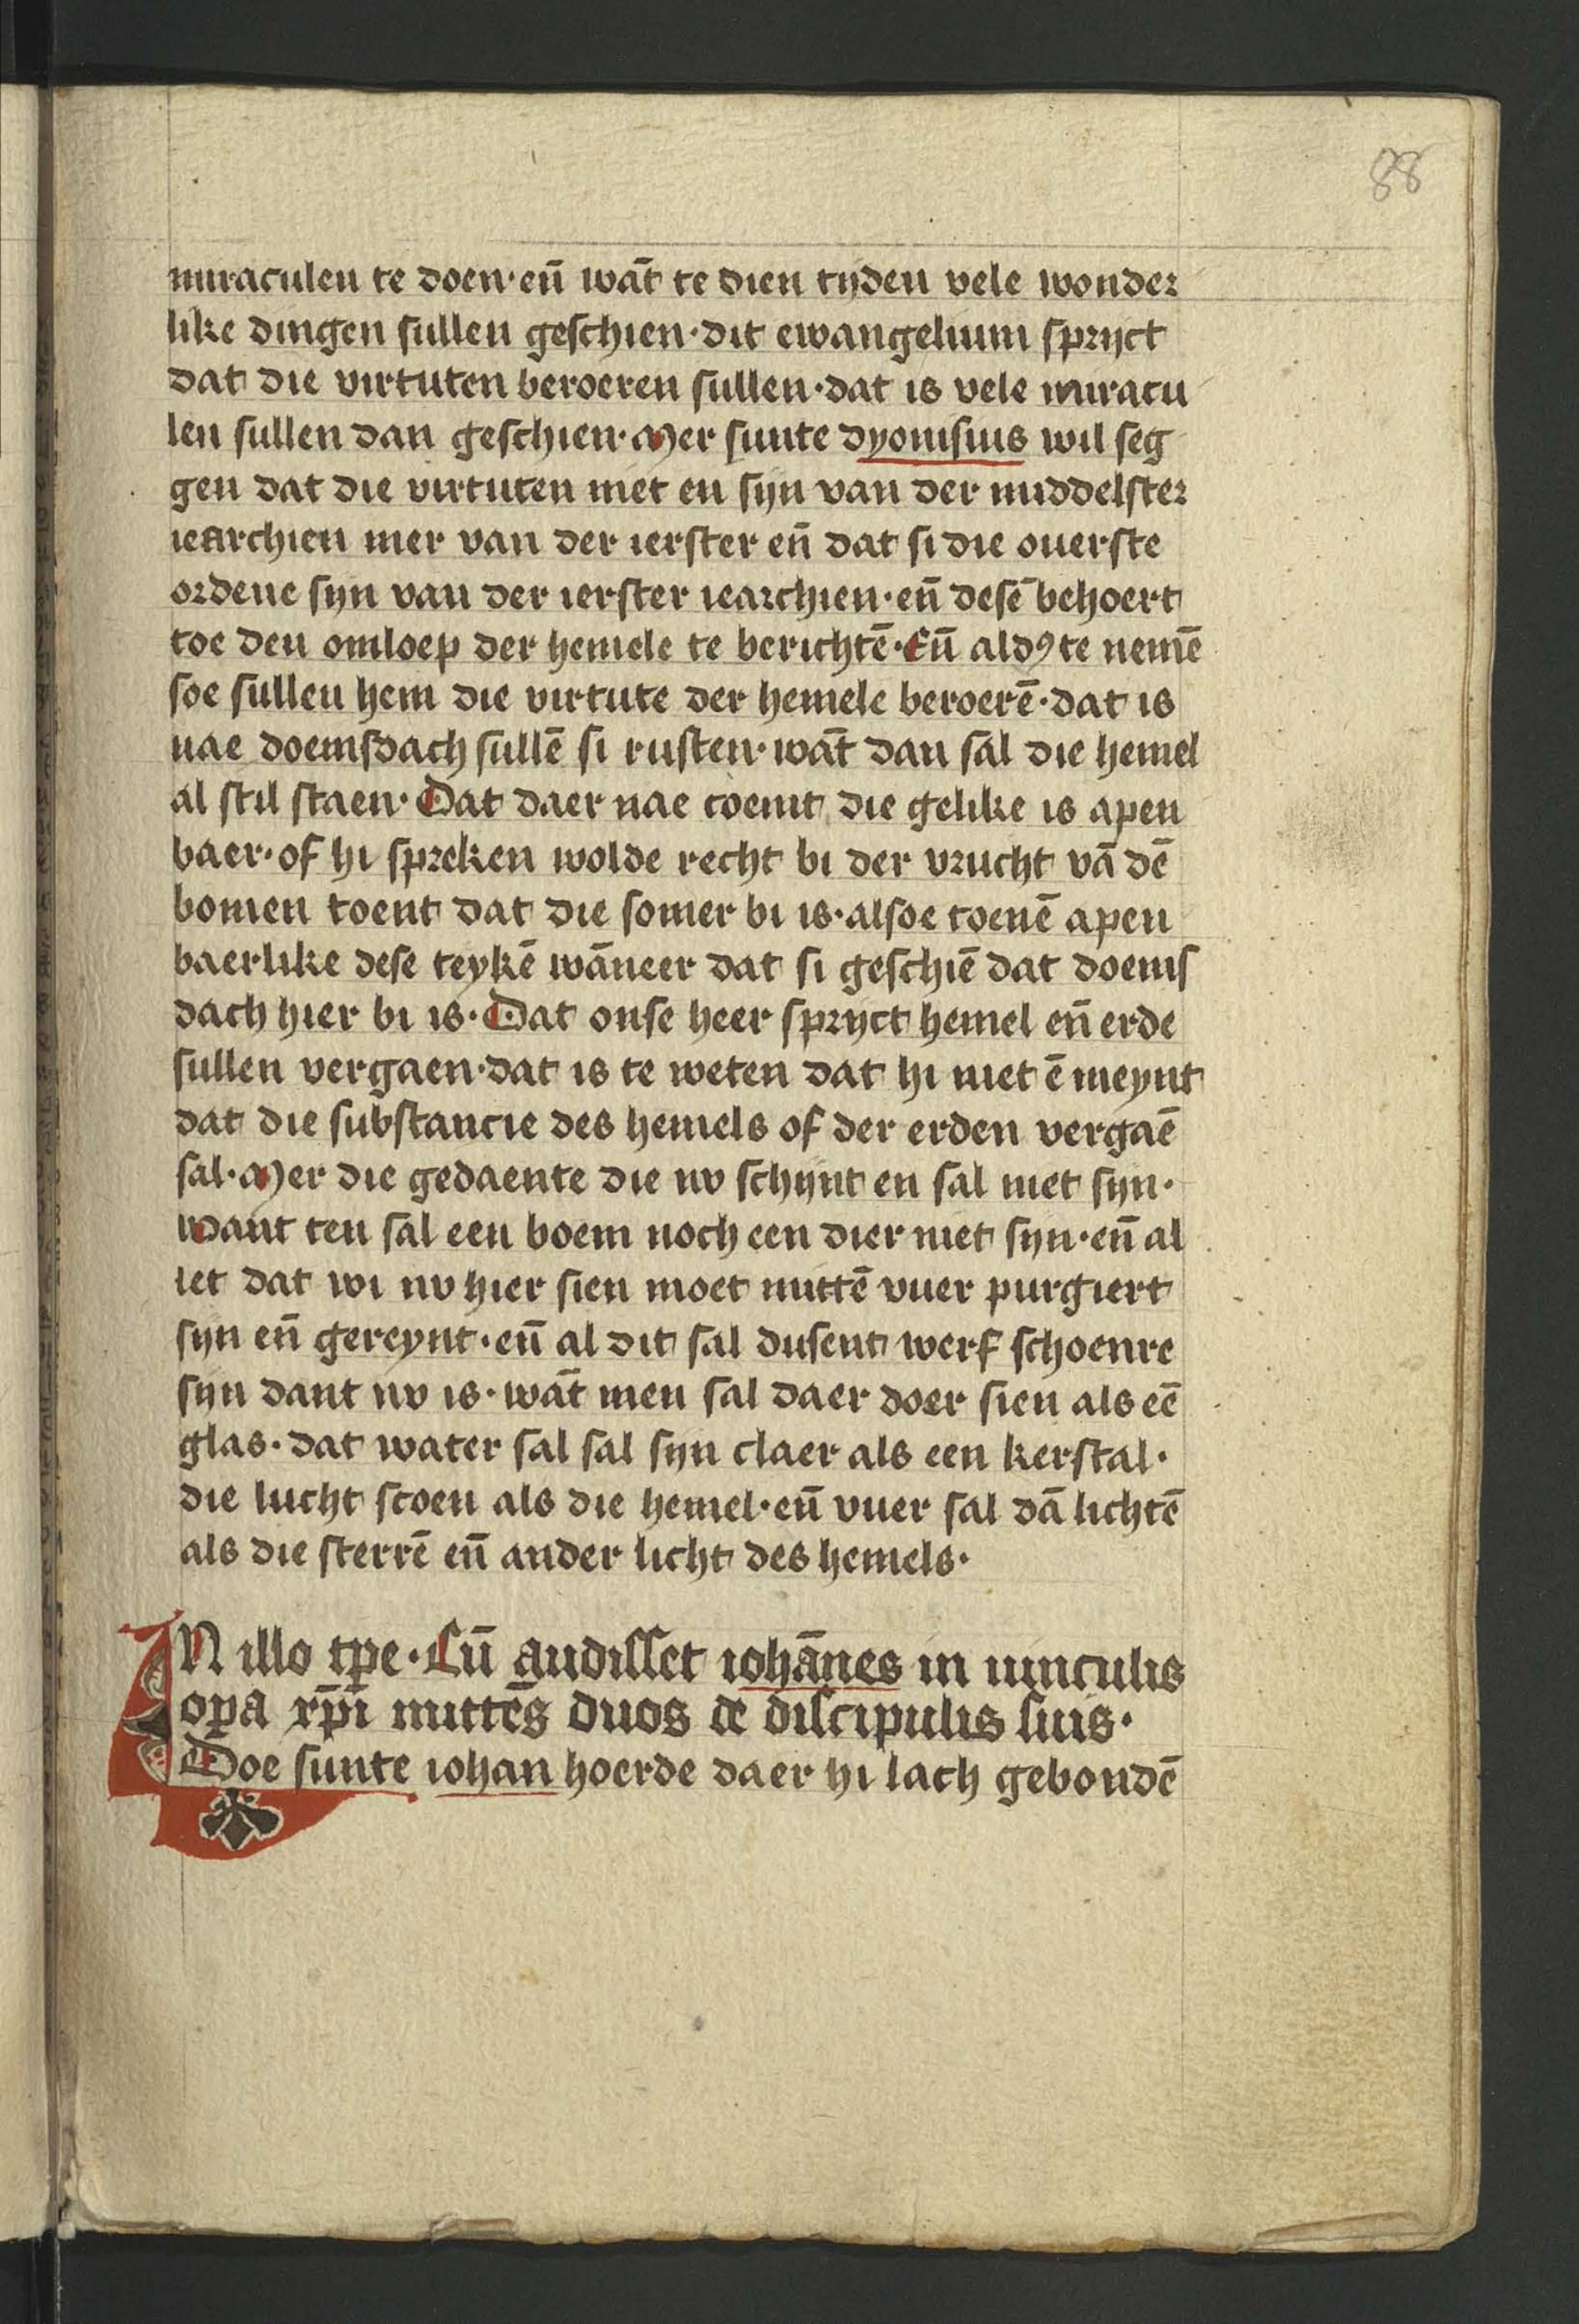 88
miraculen te doen·en̄ wāt te dien tijden vele wonder
like dingen sullen geschien·dit ewangelium sprijct
dat die virtuten beroeren sullen·dat is vele miracu
len sullen dan geschien·Mer sunte dyonisius wil seg
gen dat die virtuten niet en sijn van der middelster
iearchien mer van der ierster en̄ dat si die ouerste
ordene sijn van der ierster iearchien·en̄ desē behoert
toe den omloep der hemele te berichtē·En̄ aldꝰ te nemē
soe sullen hem die virtute der hemele beroerē·dat is
nae doemsdach sullē si rusten·wāt dan sal die hemel
al stil staen·Dat daer nae coemt die gelike is apen
baer·of hi spreken wolde recht bi der vrucht vā dē
bomen toent dat die somer bi is·alsoe toenē apen
baerlike dese teykē wāneer dat si geschiē dat doems
dach hier bi is·Dat onse heer sprijct hemel en̄ erde
sullen vergaen·dat is te weten dat hi niet ē meynt
dat die substancie des hemels of der erden vergaē
sal·Mer die gedaente die nv schijnt en sal niet sijn·
want ten sal een boem noch een dier niet sijn·en̄ al
iet dat wi nv hier sien moet mittē vuer purgiert
sijn en̄ gereynt·en̄ al dit sal dusent werf schoenre
sijn dant nv is·wāt men sal daer doer sien als eē
glas·dat water sal sal sijn claer als een kerstal·
die lucht scoen als die hemel·en̄ vuer sal dā lichtē
als die sterrē en̄ ander licht des hemels·
IN illo tp̄e·Cū audisset iohānes in uinculis
opa xp̄i mittēs duos de discipulis suis·
Doe sunte iohan hoerde daer hi lach gebondē